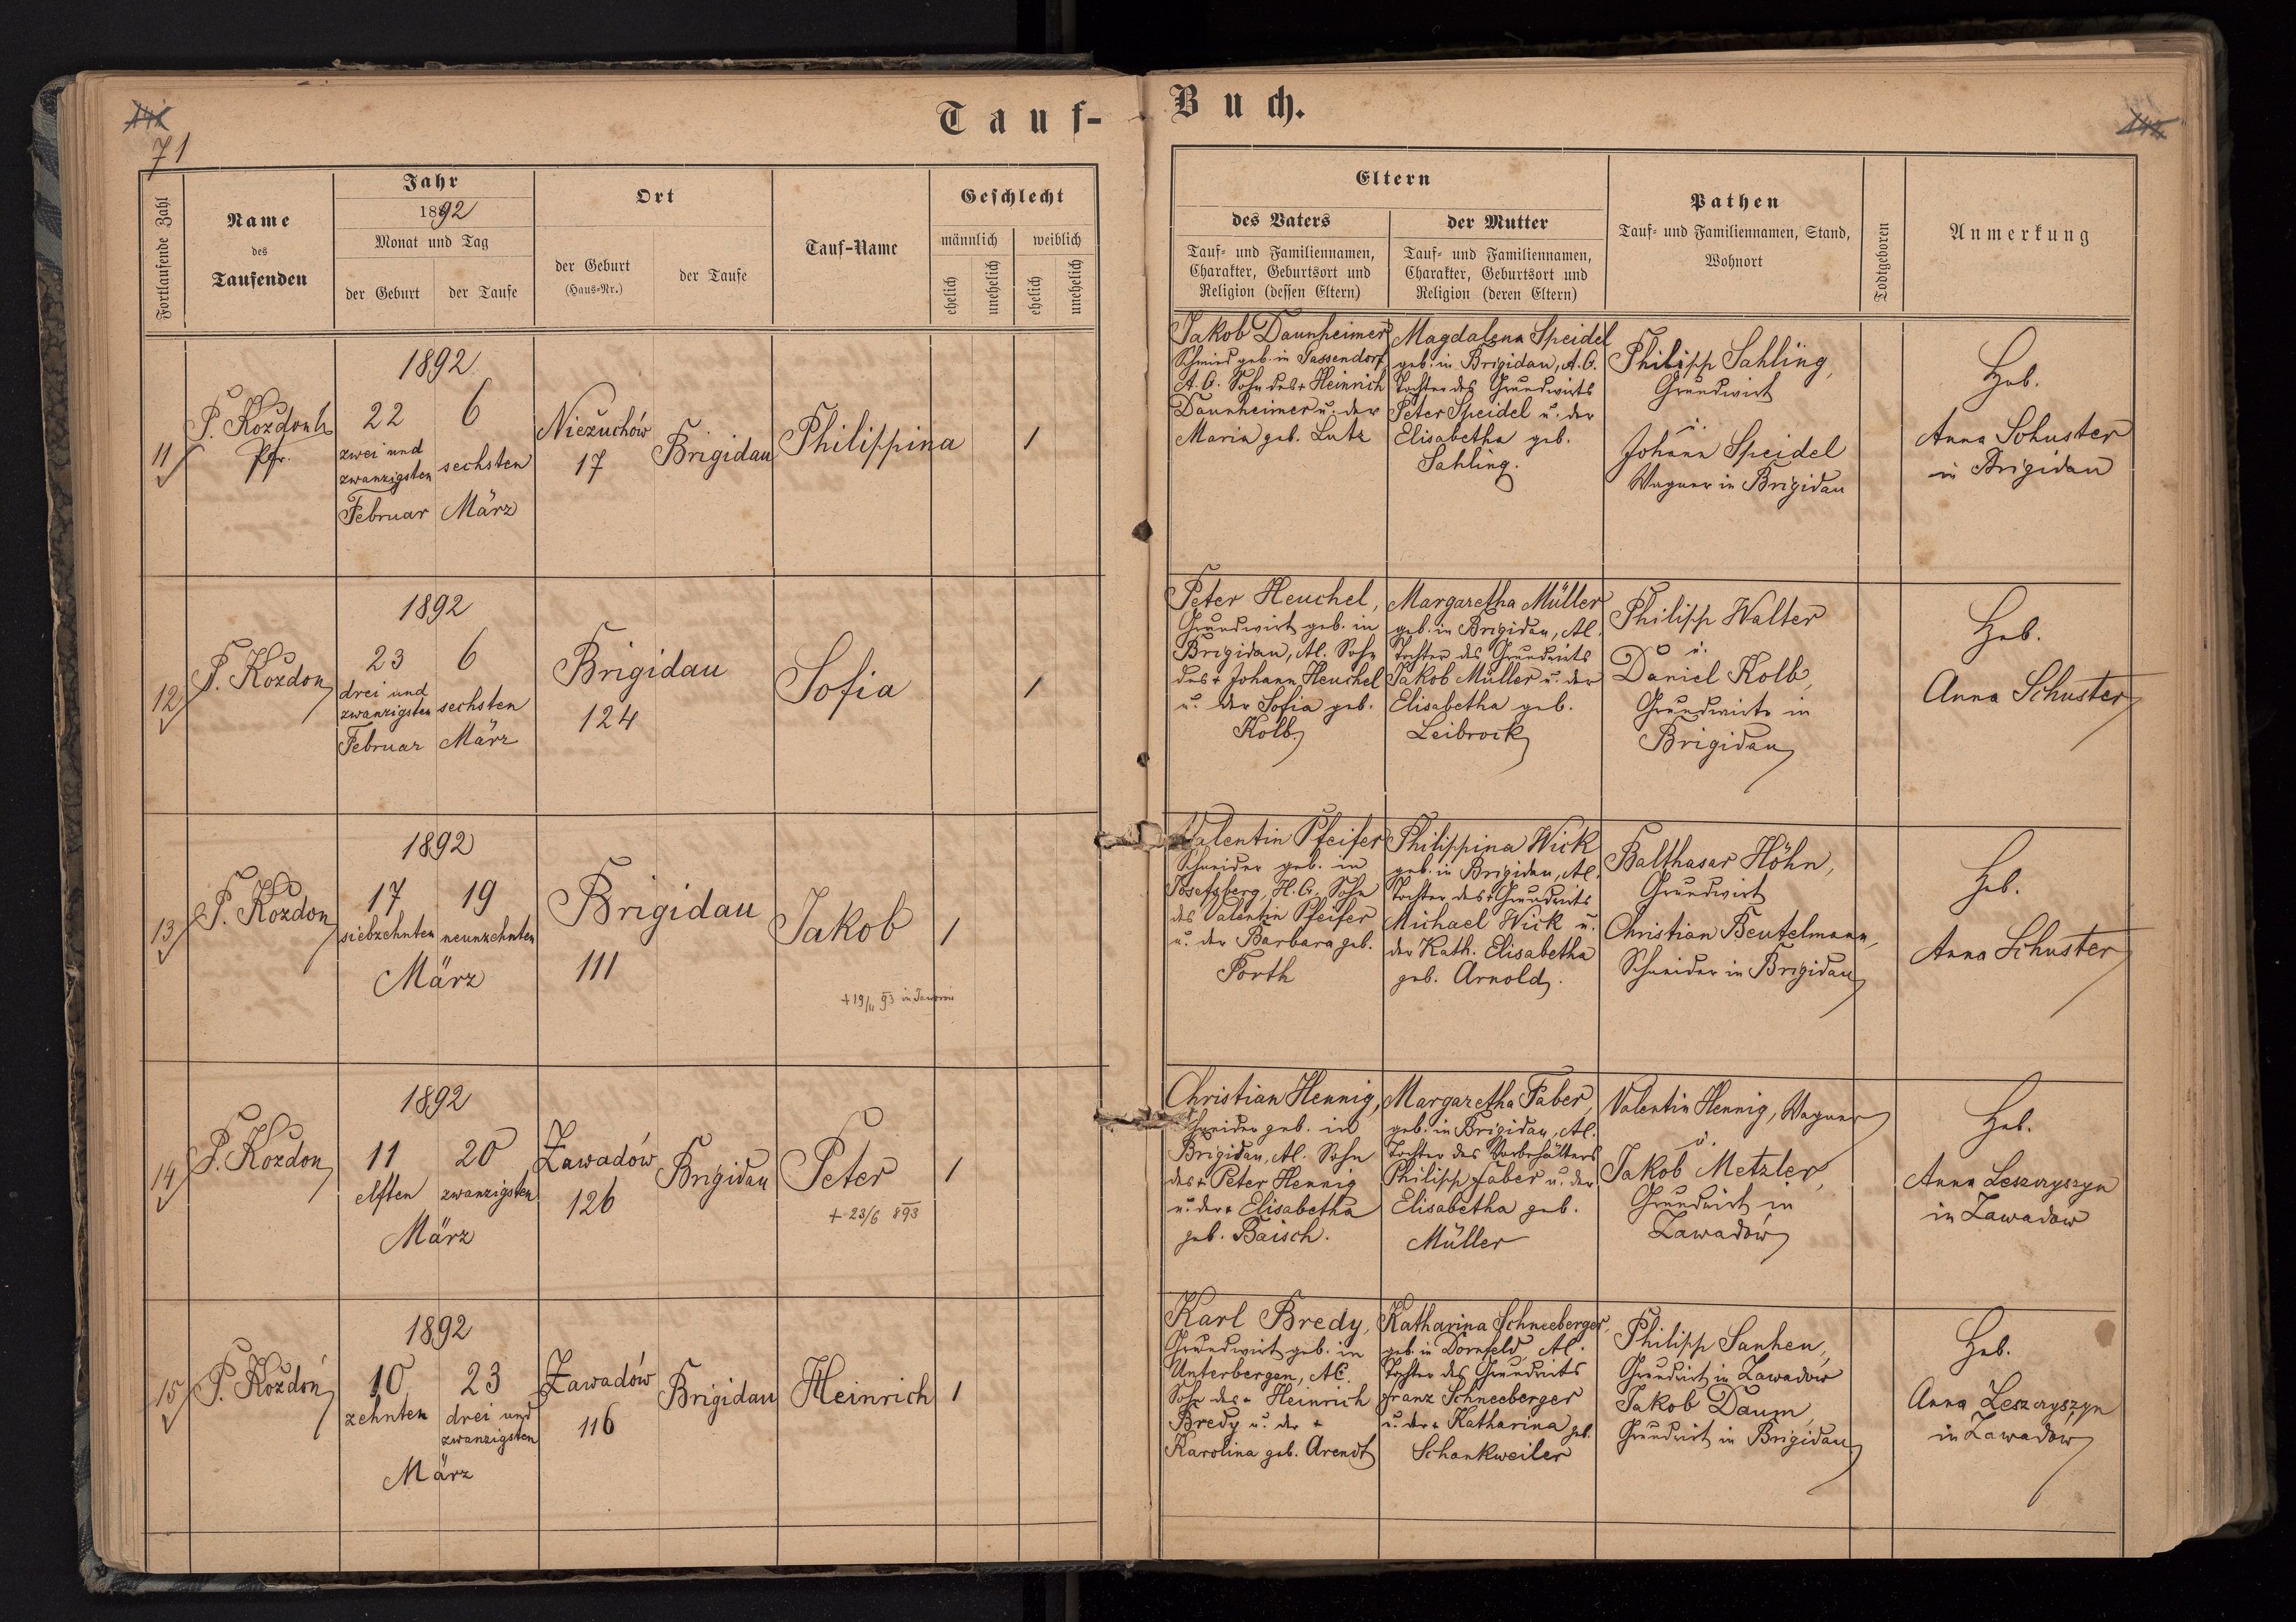 Tauf-
Buch.
71
Fortlaufende Zahl
Name
des
Taufenden
Jahr
1892
Monat und Tag
der Geburt
der Taufe
Ort
der Geburt
(Haus-Nr.)
der Taufe
Tauf-Name
Geschlecht
männlich
weiblich
ehelich
unehelich
ehelich
unehelich
Eltern
des Vaters
Tauf- und Familiennamen,
Charakter, Geburtsort und
Religion (dessen Eltern)
der Mutter
Tauf- und Familiennamen,
Charakter, Geburtsort und
Religion (deren Eltern)
Pathen
Tauf- und Familiennamen, Stand,
Wohnort
Todtgeboren
Anmerkung
11
P. Kozdon
Pfr.
1892
22
zwei und
zwanzigsten
Februar
6
sechsten
März
Niezuchów
17
Brigidau
Philippina
1
Jakob Daunheimer
Schmied geb. in Gassendorf,
A.C. Sohn des + Heinrich
Daunheimer u. der
Maria geb. Lutz
Magdalena Speidel
geb. in Brigidau, A.C.
Tochter des Grundwirts
Peter Speidel u. der
Elisabetha geb.
Sahling.
Philipp Sahling,
Grundwirt
u.
Johann Speidel
Wagner in Brigidau
Heb.
Anna Schuster
in Brigidau
12
P. Kozdon
1892
23
drei und
zwanzigsten
Februar
6
sechsten
März
Brigidau
124
Sofia
1
Peter Heuchel,
Grundwirt geb. in
Brigidau, AC. Sohn
des + Johann Heuchel
u. der Sofia geb.
Kolb.
Margaretha Müller
geb. in Brigidau, AC.
Tochter des Grundwirts
Jakob Müller u. der
Elisabetha geb.
Leibrock
Philipp Walter
u.
Daniel Kolb,
Grundwirte in
Brigidau
Heb.
Anna Schuster
13
P. Kozdon
1892
17
siebzehnten
19
neunzehnten
März
Brigidau
111
Jakob
+ 19/11 93 in
1
Valentin Pfeifer
Schneider geb. in
Josefsberg, H.C. Sohn
des Valentin Pfeifer
u. der Barbara geb.
Forth
Philippina Wick
geb. in Brigidau, AC.
Tochter des + Grundwirts
Michael Wick u.
der Kath. Elisabetha
geb. Arnold.
Balthasar Höhn,
Grundwirt
Christian Beutelmann,
Schneider in Brigidau
Heb.
Anna Schuster
14
P. Kozdon
1892
11
elften
20
zwanzigsten
März
Zawadów
126
Brigidau
Peter
+ 23/6 893
1
Christian Hennig,
Schneider geb. in
Brigidau, AC. Sohn
des + Peter Hennig
u. der + Elisabetha
geb. Baisch.
Margaretha Faber,
geb. in Brigidau, AC.
Tochter des Vorbehälters
Philipp Faber u. der
Elisabetha geb.
Müller
Valentin Hennig, Wagner
u.
Jakob Metzler,
Grundwirt in
Zawadów
Heb.
Anna Leszczyszyn
in Zawadów
15
P. Kozdoń
1892
10
zehnten
23
drei und
zwanzigsten
März
Zawadów
116
Brigidau
Heinrich
1
Karl Bredy,
Grundwirt geb. in
Unterbergen, AC.
Sohn des + Heinrich
Bredy u. der +
Karolina geb. Arendt
Katharina Schneeberger,
geb. in Dornfeld, AC.
Tochter des Grundwirts
Franz Schneeberger
u. der + Katharina geb.
Schankweiler
Philipp Sanhen,
Grundwirt in Zawadow
Jakob Daum,
Grundwirt in Brigidau
Heb.
Anna Leszczyszyn
in Zawadów